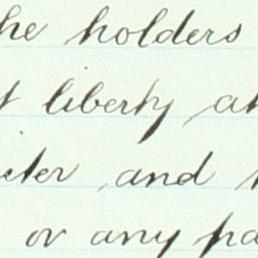 he holders
liberty at
and
or any pa